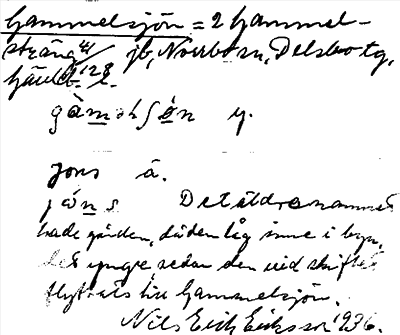 Gammelsjön = 2 Gammel-
sträng 4/1 jb, Norrbo sn, Delsbo tg,
Hälsl.
gàməlʃǿn y.
Jons ä.
jó̱ns Det äldre namnet
hade gården, då den låg inne i byn,
det yngre sedan den vid skiftet
flyttats till Gammelsjön.
Nils Erik Eriksson 1936.